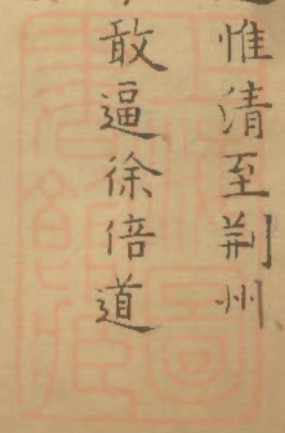 惟清至荆州
敢逼徐倍道